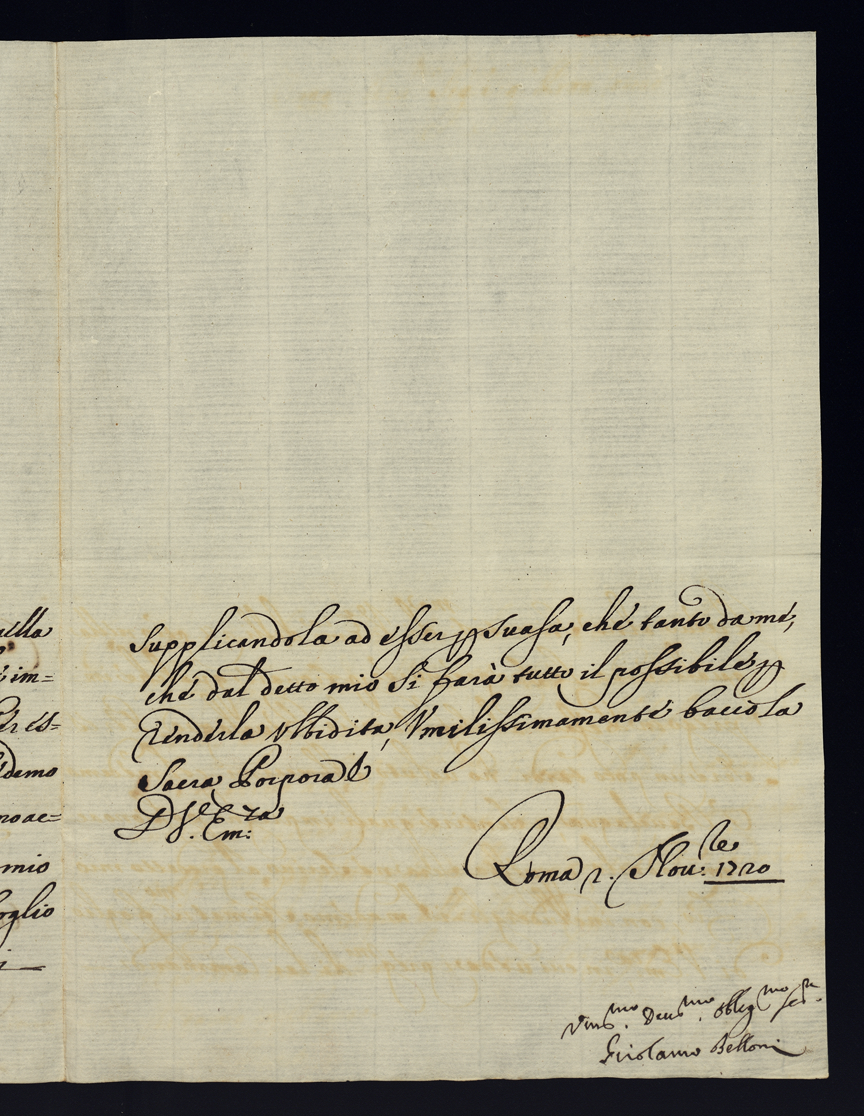 uella
é im=
Per es=
édemo
no ac=
mio
oglio
Supplicandola ad esser p suasa, ché tanto da mé,
ché dal detto mio si farà tutto il possibile p
renderla Vbbidita, Vmilissimamente baccio la
Sacra Porpora
D V. Em:za
Roma 2. Nou:re 1720
Vmo. Deumo. obbligmo ser.
Girolamo Belloni